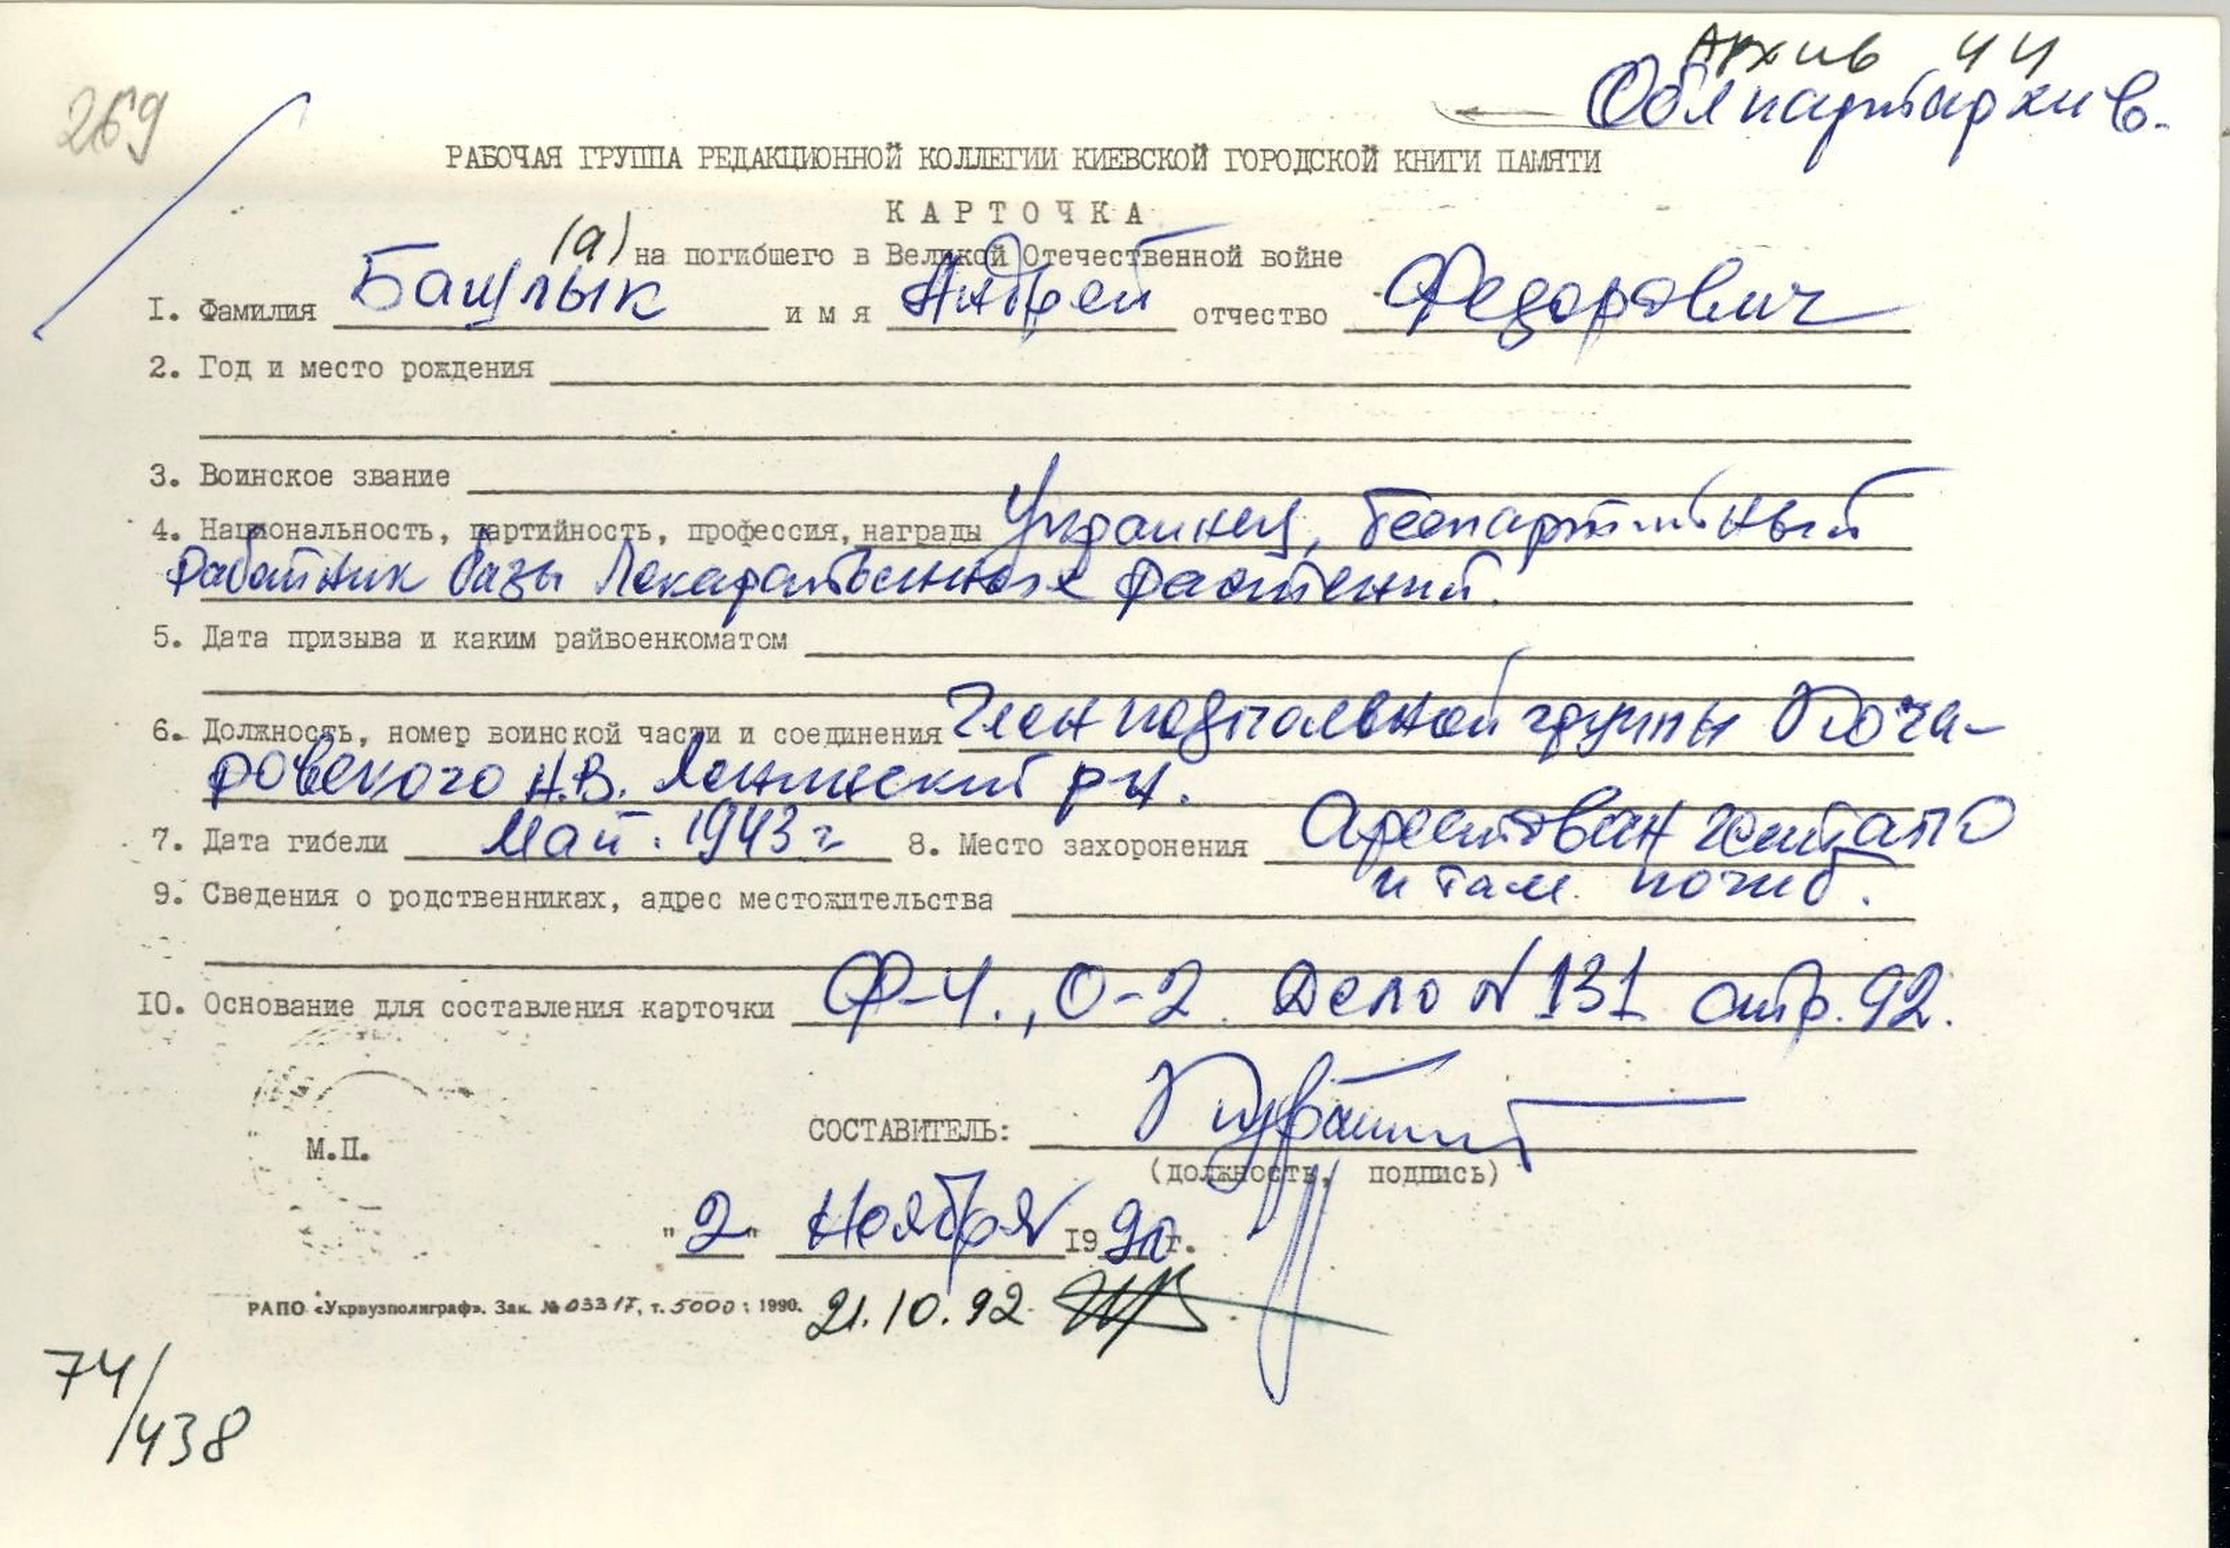 269
Архив 44
Облпартархив.
РАБОЧАЯ ГРУППА РЕДАКЦИОННОЙ КОЛЛЕГИИ КИЕВСКОЙ ГОРОДСКОЙ КНИГИ ПАМЯТИ
КАРТОЧКА
на погибшего в Великой Отечественной войне
(а)
I. Фамилия Башлык имя Андрей отчество Федорович
2. Год и место рождения
3. Воинское звание
4. Национальность, партийность, профессия, награды Украинец, беспартийный
работник базы Лекарственных растений.
5. Дата призыва и каким райвоенкоматом
6. Должность, номер воинской части и соединения Член подпольной группы Поча-
ровского Н.В. Ленинский рн.
7. Дата гибели Май. 1943 г 8. Место захоронения Арестован гестапо
и там погиб.
9. Сведения о родственниках, адрес местожительства
10. Основание для составления карточки Ф-4., О-2. Дело N 131 стр. 92.
СОСТАВИТЕЛЬ:
(должность, подпись)
М.П.
"2" Ноября 1990 г.
РАПО «Укрвузполиграф». Зак. № 03317, т. 5000: 1990.
21.10.92
74/438